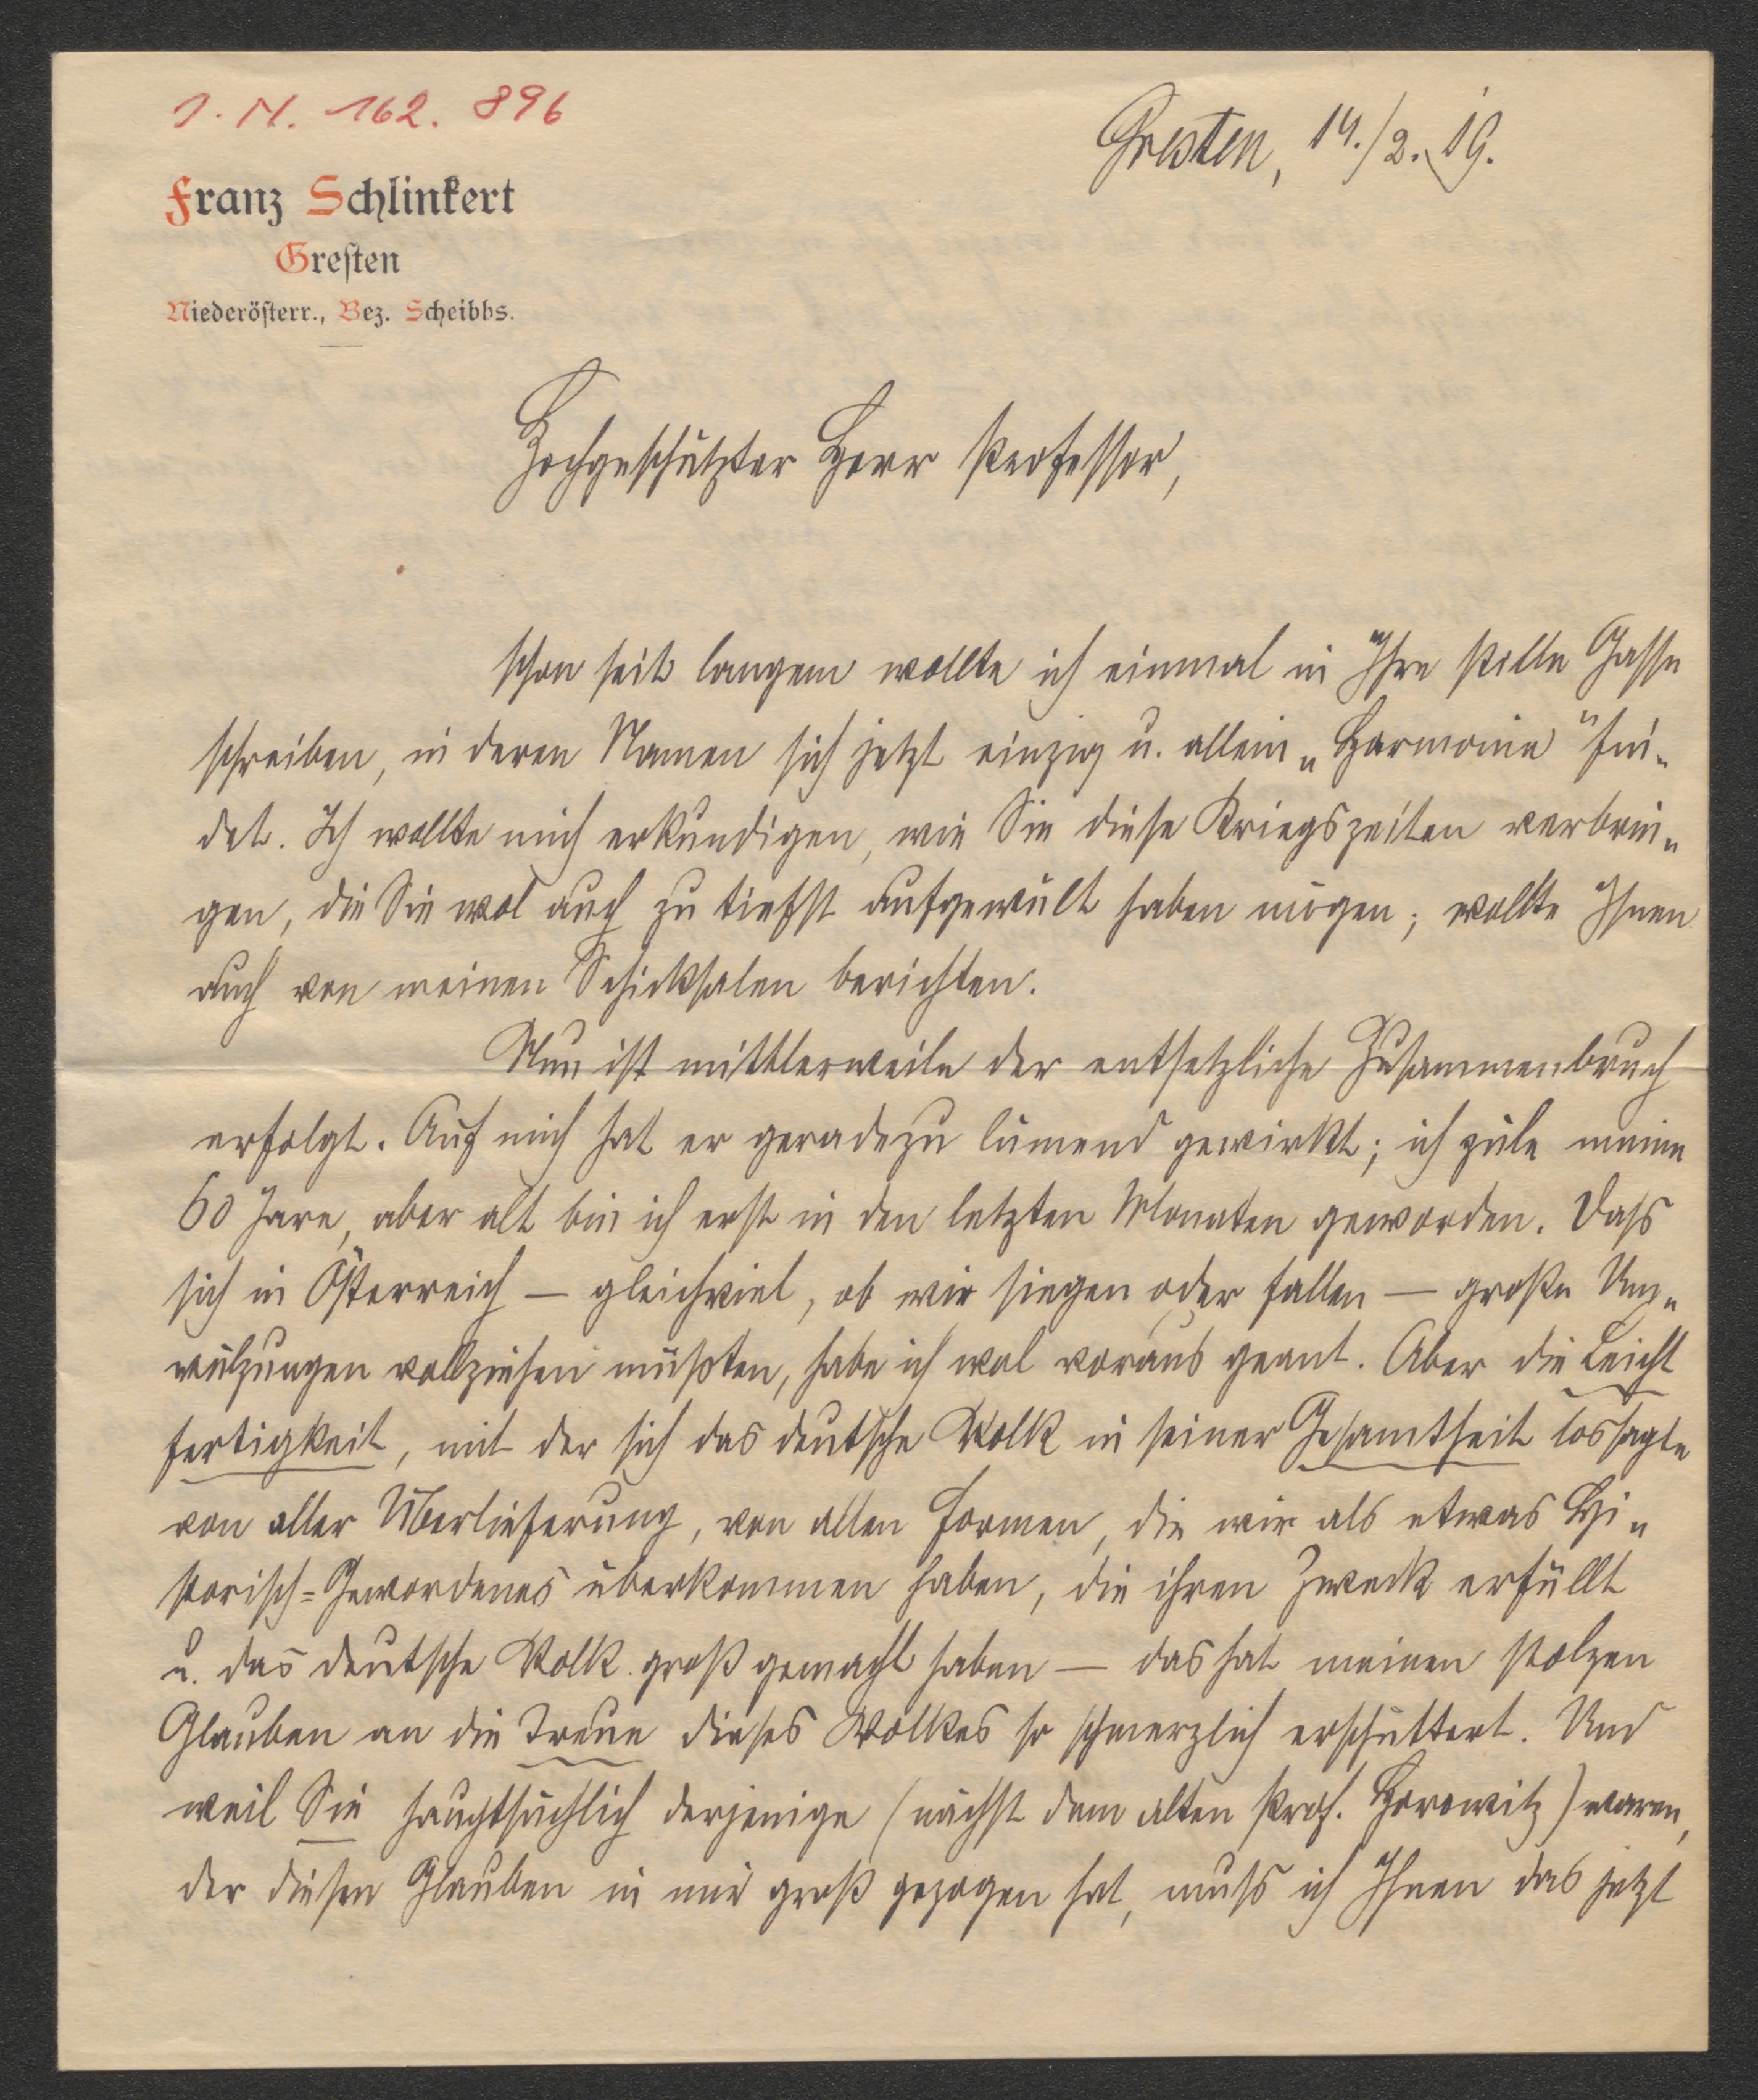 I. N. 162.896
Gresten, 14./2. 19.
Franz Schlinkert
Gresten
Niederösterr., Bez. Scheibbs.
Hochgeschätzter Herr Professor,
schon seit langem wollte ich einmal in Ihre stille Gasse
schreiben, in deren Namen sich jetzt einzig u. allein „Harmonie" fin-
det. Ich wollte mich erkundigen, wie Sie diese Kriegszeiten verbrin-
gen, die Sie wol auch zu tiefst aufgewült haben mögen; wollte Ihnen
auch von meinen Schicksalen berichten.
Nun ist mittlerweile der entsetzliche Zusammenbruch
erfolgt. Auf mich hat er geradezu lämend gewirkt; ich zäle meine
60 Jare, aber alt bin ich erst in den letzten Monaten geworden. Dass
sich in Österreich — gleichviel, ob wir siegen oder fallen — große Um-
wälzungen vollziehen müßten, habe ich wol voraus geant. Aber die Leicht
fertigkeit, mit der sich das deutsche Volk in seiner Gesamtheit lossagte
von aller Überlieferung, von allen Formen, die wir als etwas Hi-
storisch=Gewordenes überkommen haben, die ihren Zweck erfüllt
u. das deutsche Volk groß gemacht haben — das hat meinen stolzen
Glauben an die Treue dieses Volkes so schmerzlich erschüttert. Und
weil Sie hauptsächlich derjenige (nächst dem alten Prof. Horowitz) waren,
der diesen Glauben in mir groß gezogen hat, muss ich Ihnen das jetzt